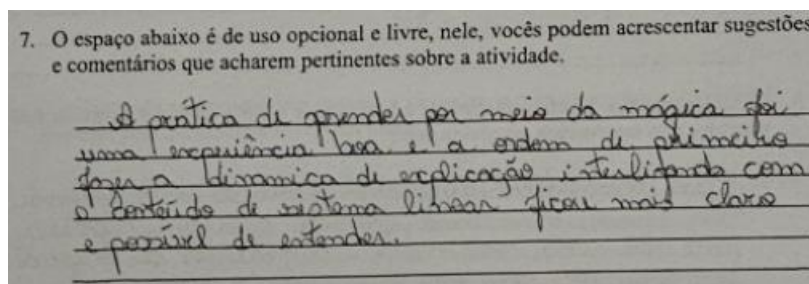 7. O espaço abaixo é de uso opcional e livre, nele, vocês podem acrescentar sugestões
e comentários que acharem pertinentes sobre a atividade.
A prática de aprender por meio da mágica foi
uma experiência boa e a ordem de primeiro
fazer a dinamica de explicação interligando com
o conteúdo de sistema linear ficou mais claro
e possível de entender.